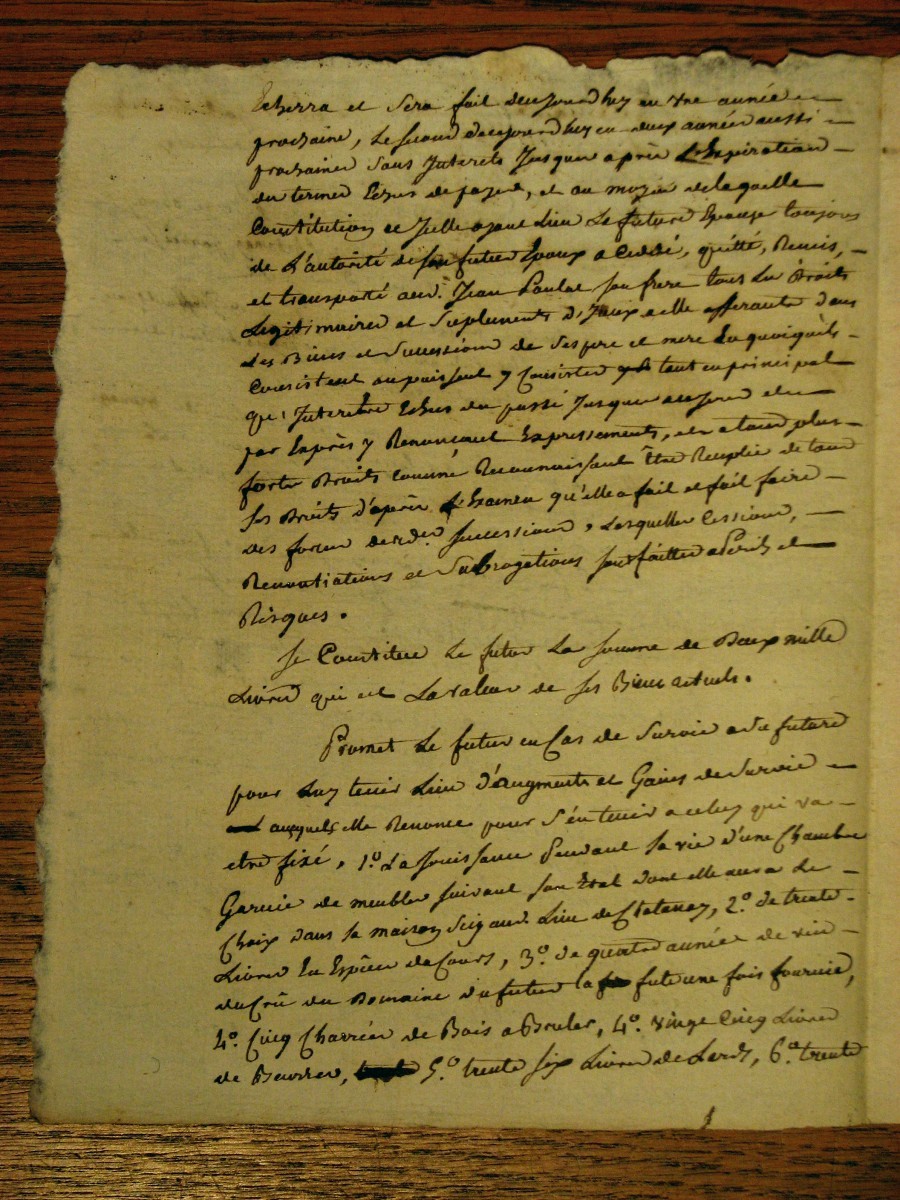 Echerra et sera fait deujourdhuy en une année
prochaine, le second deujourdhuy en deux années aussi
prochaines sans Interets Jusques après l'Expiration
du termes Echus de payer, et au moyen de laquelle
Constitution et Icelle ayant Lieu la future Epouse toujours
de L'autorité de son futur Epoux a Ceddé, quitté, Remis,
et transporté aud. Jean son frere tous les Droits
Legitimaires et Supléments d'Iceux a elle afferants dans
Les Biens et Successions de ses pere et mere En quoi qu'ils
Consistent ou puissent y Consister tant en principal
que Interets Echus du passé Jusques au Jour
par Exprès y Renoncant Expressement, et a tous plus
forts Droits comme Reconnaissant Être Remplie de tous
ses Droits d'après L'Examen qu'elle a fait et fait faire
des forces desdes successions, Lesquelles Cessions,
Renontiations et Subrogations sont faittes a Perils et
Risques.
Se Constitue Le futur La somme de Deux mille
Livres qui est La valeur de ses Biens actuels.
Promet Le futur en Cas de Survie a sa future
pour Luy tenir Lieu d'augments et Gains de Survie
auxquels elle Renonce pour s'en tenir a celuy qui va
etre fixé, 1o. La Jouissance Pendant sa vie d'une Chambre
Garnie de meubles suivant son Etat dont elle aura Le
Choix dans la maison Lieu de, 2o. de trente
Livres En Espèces de Cours, 3o. de quatre années de vin
du Crû du Domaine du futur la fute une fois fournie,
4o. Cinq Charrées de Bois a Bruler, 4o. vingt Cinq Livres
de Beurre, 5.o trente six Livres de Lard, 6.o trente